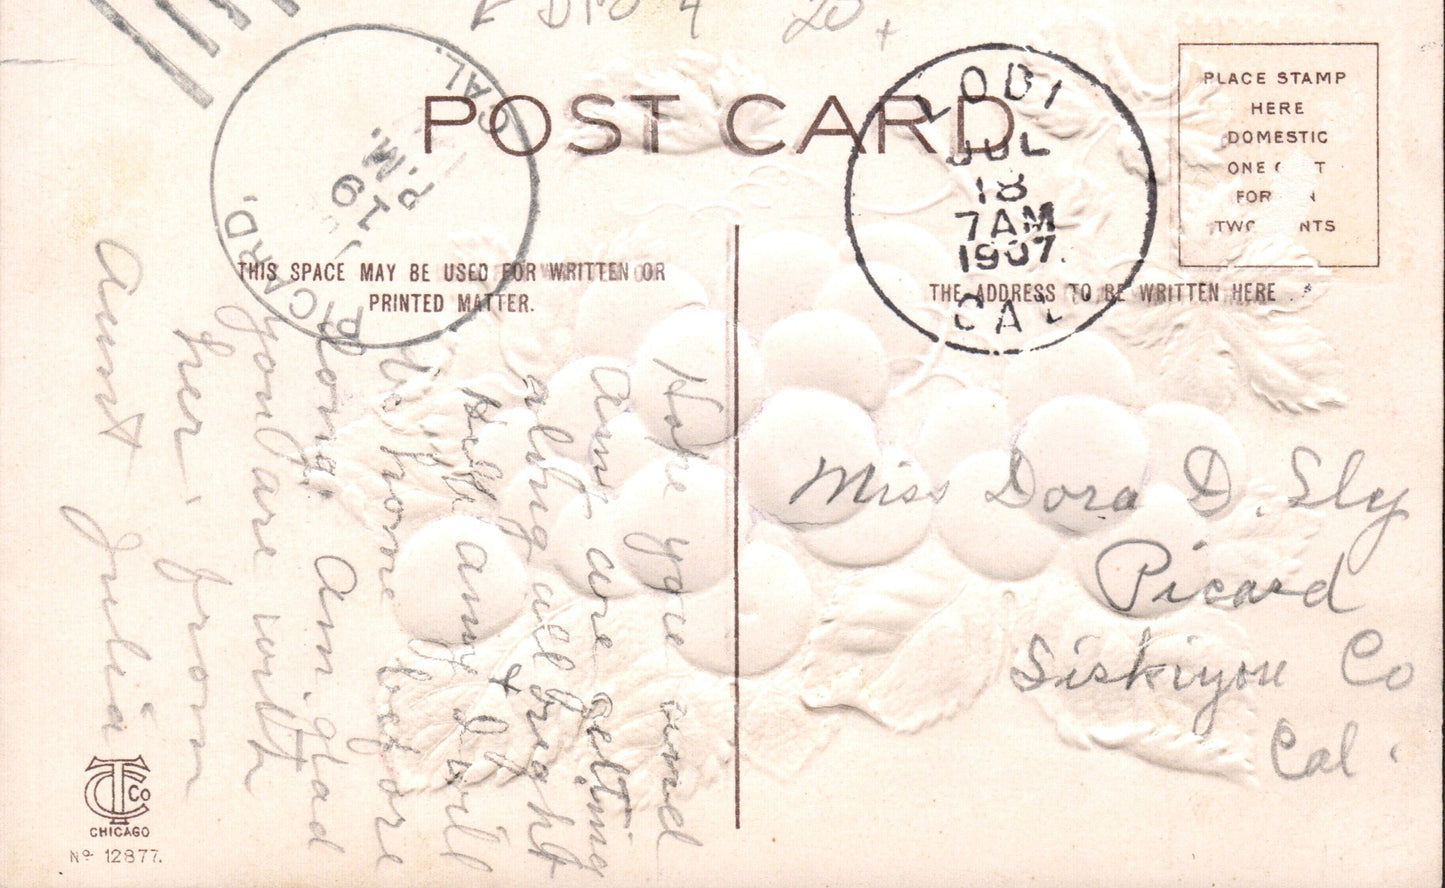 POST CARD
LODI
JUL
18
7 AM
1907.
CAL
PICARD, CAL.
19
P.M.
PLACE STAMP
HERE
DOMESTIC
ONE
FOR
THIS SPACE MAY BE USED FOR WRITTEN OR
PRINTED MATTER.
THE ADDRESS TO BE WRITTEN HERE.
Hope you and
Aunt are getting
along all right
Amy & I will
be home before
long. Am glad
you are with
her. from
Aunt Julia
Miss Dora D. Sly
Picard
Siskiyou Co
Cal.
TCCo
CHICAGO
No 12877.